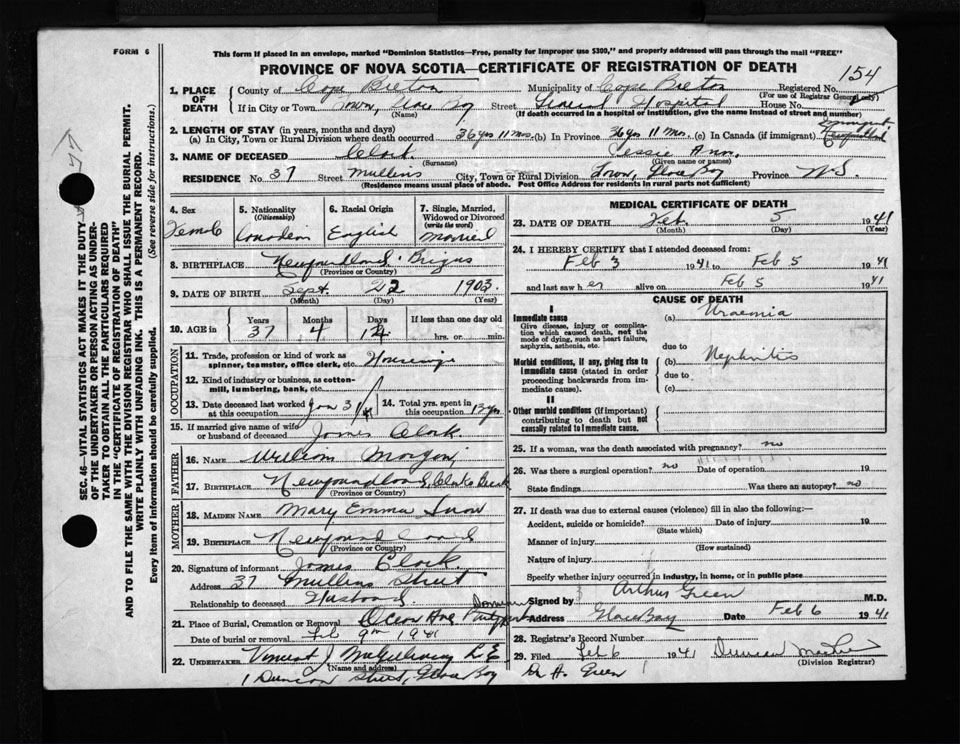 FORM 6
This form if placed in an envelope, marked "Dominion Statistics—Free, penalty for improper use $300," and properly addressed will pass through the mail "FREE"
PROVINCE OF NOVA SCOTIA—CERTIFICATE OF REGISTRATION OF DEATH
154
1. PLACE OF DEATH
County of Cape Breton Municipality of Cape Breton Registered No.
(For use of Registrar General only)
If in City or Town Town, Glace Bay Street General Hospital House No.
(Name) (If death occurred in a hospital or institution, give the name instead of street and number)
2. LENGTH OF STAY (in years, months and days)
(a) In City, Town or Rural Division where death occurred 36 yrs 11 mos. (b) In Province 36 yrs 11 mos. (c) In Canada (if immigrant)
3. NAME OF DECEASED Clark Jessie Ann,
(Surname) (Given name or names)
RESIDENCE No. 37 Street Mullins City, Town or Rural Division Town, Glace Bay Province N.S.
(Residence means usual place of abode. Post Office Address for residents in rural parts not sufficient)
4. Sex Female
5. Nationality (Citizenship) Canadian
6. Racial Origin English
7. Single, Married, Widowed or Divorced (write the word) Married
8. BIRTHPLACE Newfoundland Brigus
(Province or Country)
9. DATE OF BIRTH Sept. 22 1903
(Month) (Day) (Year)
10. AGE in Years Months Days If less than one day old
37 4 14 hrs. or min.
OCCUPATION
11. Trade, profession or kind of work as spinner, teamster, office clerk, etc.
12. Kind of industry or business, as cotton-mill, lumbering, bank, etc.
13. Date deceased last worked at this occupation Jan 31/41
14. Total yrs. spent in this occupation
15. If married give name of wife or husband of deceased James Clark.
FATHER
16. NAME William Morgan,
17. BIRTHPLACE Newfoundland, Clarks Beach
(Province or Country)
MOTHER
18. MAIDEN NAME Mary Emma Snow
19. BIRTHPLACE Newfoundland
(Province or Country)
20. Signature of informant James Clark.
Address 37 Mullins Street
Relationship to deceased Husband
21. Place of Burial, Cremation or Removal Ocean Ave
Date of burial or removal Feb 9th 1941
22. UNDERTAKER Vincent J.
(Name and address)
1 Duncan Street, Glace Bay
MEDICAL CERTIFICATE OF DEATH
23. DATE OF DEATH Feb. 5 1941
(Month) (Day) (Year)
24. I HEREBY CERTIFY that I attended deceased from:
Feb 3 1941 to Feb 5 1941
and last saw her alive on Feb 5 1941
CAUSE OF DEATH
I
Immediate cause
Give disease, injury or complication which caused death, not the mode of dying, such as heart failure, asphyxia, asthenia, etc.
(a) Uraemia
due to
Morbid conditions, if any, giving rise to immediate cause (stated in order proceeding backwards from immediate cause).
(b) Nephritis
due to
(c)
II
Other morbid conditions (if important) contributing to death but not causally related to immediate cause.
25. If a woman, was the death associated with pregnancy? no
26. Was there a surgical operation? no Date of operation 19
State findings Was there an autopsy? no
27. If death was due to external causes (violence) fill in also the following:—
Accident, suicide or homicide? Date of injury 19
(State which)
Manner of injury
(How sustained)
Nature of injury
Specify whether injury occurred in industry, in home, or in public place
Signed by Arthur Green M.D.
Address Glace Bay Date Feb 6 1941
28. Registrar's Record Number
29. Filed Feb 6 1941 Duncan
(Division Registrar)
Dr A. Green
SEC. 46—VITAL STATISTICS ACT MAKES IT THE DUTY
OF THE UNDERTAKER OR PERSON ACTING AS UNDER-
TAKER TO OBTAIN ALL THE PARTICULARS REQUIRED
IN THE "CERTIFICATE OF REGISTRATION OF DEATH"
AND TO FILE THE SAME WITH THE DIVISION REGISTRAR WHO SHALL ISSUE THE BURIAL PERMIT.
WRITE PLAINLY WITH UNFADING INK. THIS IS A PERMANENT RECORD.
Every item of information should be carefully supplied. (See reverse side for instructions.)